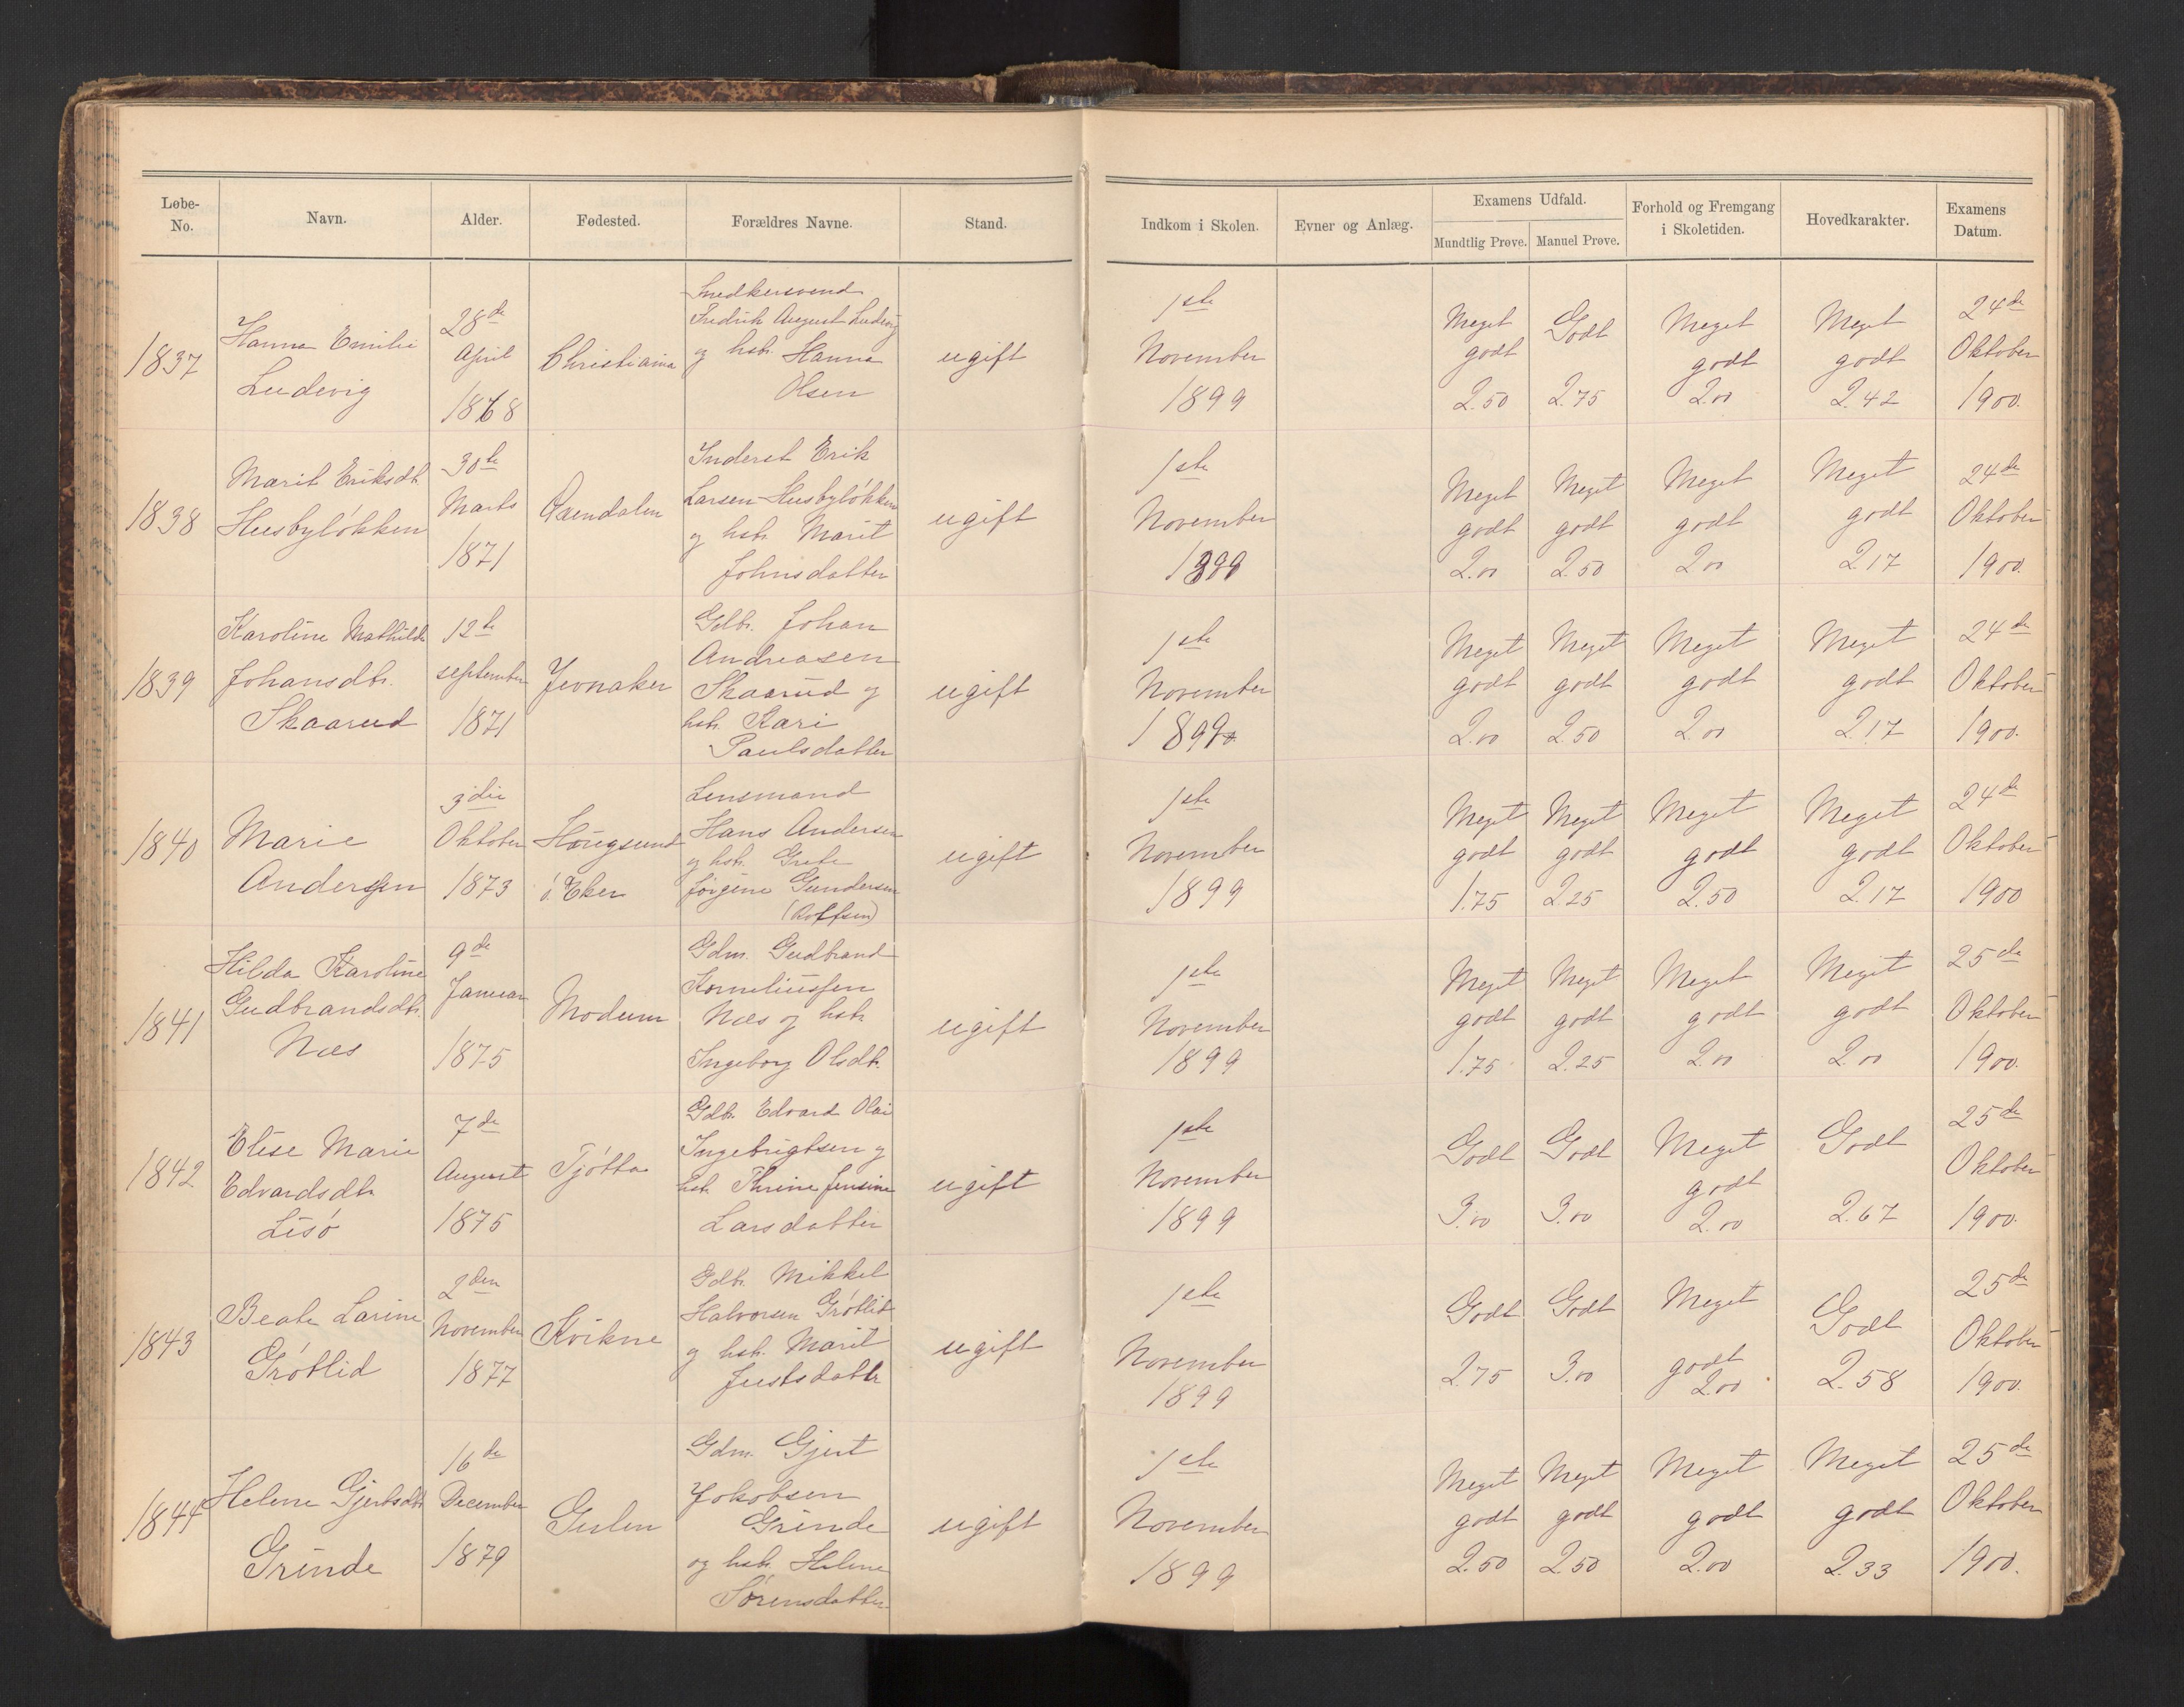 Løbe-No. Navn. Alder. Fødested. Forældres Navne. Stand. Indkom i Skolen. Evner og Anlæg. Examens Udfald. Mundtlig Prøve. Manuel Prøve. Forhold og Fremgang i Skoletiden. Hovedkarakter. Examens Datum.
1837
Hanna Emilie
Ludevig
28de
April
1868
Christiania
Snedkersvend
Fredrik August Ludevig
og hstr. Hanna
Olsen
ugift
1ste
November
1899
Meget
godt
2.50
Godt
2.75
Meget
godt
2.00
Meget
godt
2.42
24de
Oktober
1900.
1838
Marit Eriksdtr.
Husbyløkken
30te
Marts
1871
Inderst Erik
Larsen Husbyløkken
og hstr. Marit
Johnsdatter
ugift
1ste
November
1899
Meget
godt
2.00
Meget
godt
2.50
Meget
godt
2.00
Meget
godt
2.17
24de
Oktober
1900.
1839
Karoline Mathilde
Johansdtr.
Skaarud
12te
september
1871
Jevnaker
Gdbr. Johan
Andreasen
Skaarud og
hstr. Kari
Paulsdatter
ugift
1ste
November
1899
Meget
godt
2.00
Meget
godt
2.50
Meget
godt
2.00
Meget
godt
2.17
24de
Oktober
1900.
1840
Marie
Andersen
3die
Oktober
1873
Hougsund
ø. Eker
Lensmand
Hans Andersen
og hstr. Grete
Jørgine Gundersen
(Roffsen)
ugift
1ste
November
1899
Meget
godt
1.75
Meget
godt
2.25
Meget
godt
2.50
Meget
godt
2.17
24de
Oktober
1900
1841
Hilda Karoline
Gudbrandsdtr.
Næs
9de
Januar
1875
Modum
Gdm. Gudbrand
Korneliussen
Næs og hstr.
Ingeborg Olsdtr.
ugift
1ste
November
1899
Meget
godt
1.75
Meget
godt
2.25
Meget
godt
2.00
Meget
godt
2.00
25de
Oktober
1900.
1842
Elise Marie
Edvardsdtr.
Lisø
7de
August
1875
Tjøtta
Gdbr. Edvard Olai
Ingebrigtsen og
hstr. Thrine Jensine
Larsdatter
ugift
1ste
November
1899
Godt
3.00
Godt
3.00
Meget
godt
2.00
Godt
2.67
25de
Oktober
1900.
1843
Beate Larine
Grøtlid
2den
November
1877
Kvikne
Gdbr. Mikkel
Halvorsen Grøtlid
og hstr. Marit
Justsdattr
ugift
1ste
November
1899
Godt
2.75
Godt
3.00
Meget
godt
2.00
Godt
2.58
25de
Oktober
1900.
1844
Helene Gjertsdtr.
Grinde
16de
December
1879
Gulen
Gdm. Gjert
Jokobsen
Grinde
og hstr. Helene
Sørensdatter
ugift
1ste
November
1899
Meget
godt
2.50
Meget
godt
2.50
Meget
godt
2.00
Meget
godt
2.33
25de
Oktober
1900.